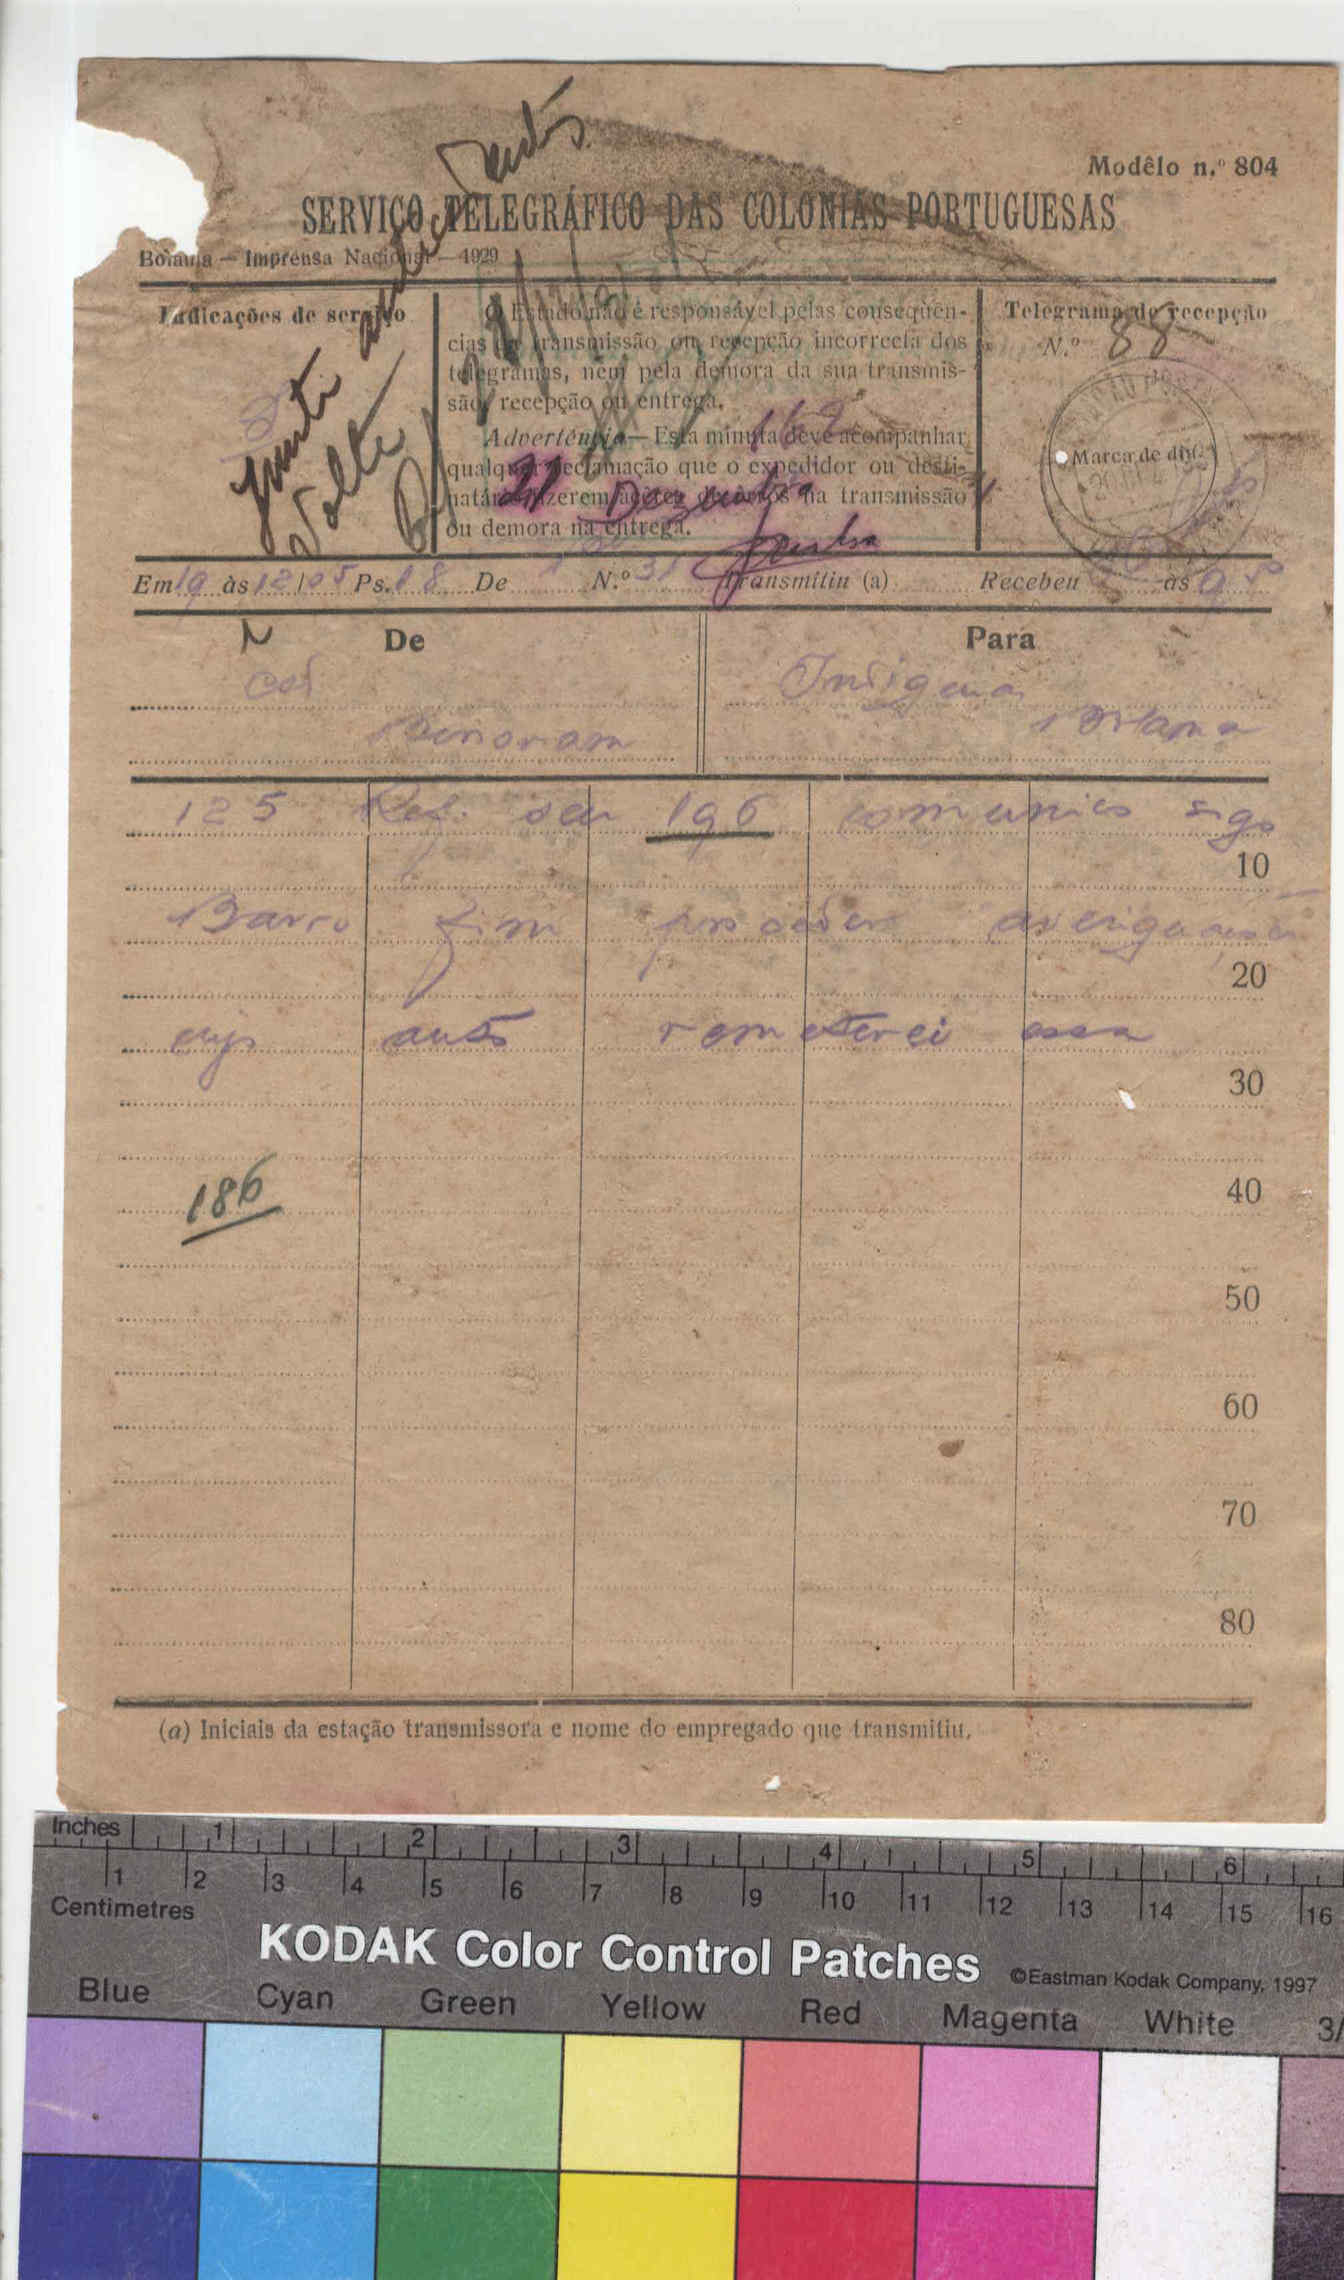 Modêlo n.º 804
SERVIÇO TELEGRÁFICO DAS COLONIAS PORTUGUESAS
Bolama — Imprensa Nacional — 1929
Indicações de serviço
O Estado não é responsável pelas conseqüên-
cias da transmissão ou recepção incorrecta dos
telegramas, nem pela demora da sua transmis-
são, recepção ou entrega.
Advertência — Esta minuta deve acompanhar
qualquer reclamação que o expedidor ou desti-
natário fizerem àcêrca de erros na transmissão
ou demora na entrega.
Telegrama de recepção
N.º 88
Marca de dia
Junte
Volte
169
21 Dezembro
Em 19 às 12/05 Ps. 18 De N.º 31 Transmitiu (a) Recebeu às 9 50
De
Para
Indigena
Bolama
125 Ref. seu 196 comunico sigo
10
Barro fim proceder averiguações
20
cujo auto remeterei essa
30
186
40
50
60
70
80
(a) Iniciais da estação transmissora e nome do empregado que transmitiu.
Inches 1 2 3 4 5 6
1 2 3 4 5 6 7 8 9 10 11 12 13 14 15 16
Centimetres
KODAK Color Control Patches ©Eastman Kodak Company, 1997
Blue Cyan Green Yellow Red Magenta White 3/